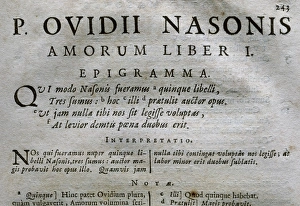 243
P. OVIDII NASONIS
AMORUM LIBER I.
EPIGRAMMA.
QUI modo Nasonis fueramus a quinque libelli,
Tres sumus: b hoc c illi d prætulit auctor opus.
Ut jam nulla tibi nos sit legisse voluptas,
At levior demtis pœna duobus erit.
INTERPRETATIO.
NOs qui fueramus nuper quinque libelli Nasonis, tres sumus: auctor magis probavit hos opus illo. Quamvis jam
nulla tibi contingat voluptas nos legisse: at labor minor erit duobus sublatis.
NOTÆ.
a Quinque] Hinc patet Ovidium plura
vulgaverit, Amorum volumina
c Illi] Quod quinque habebat,